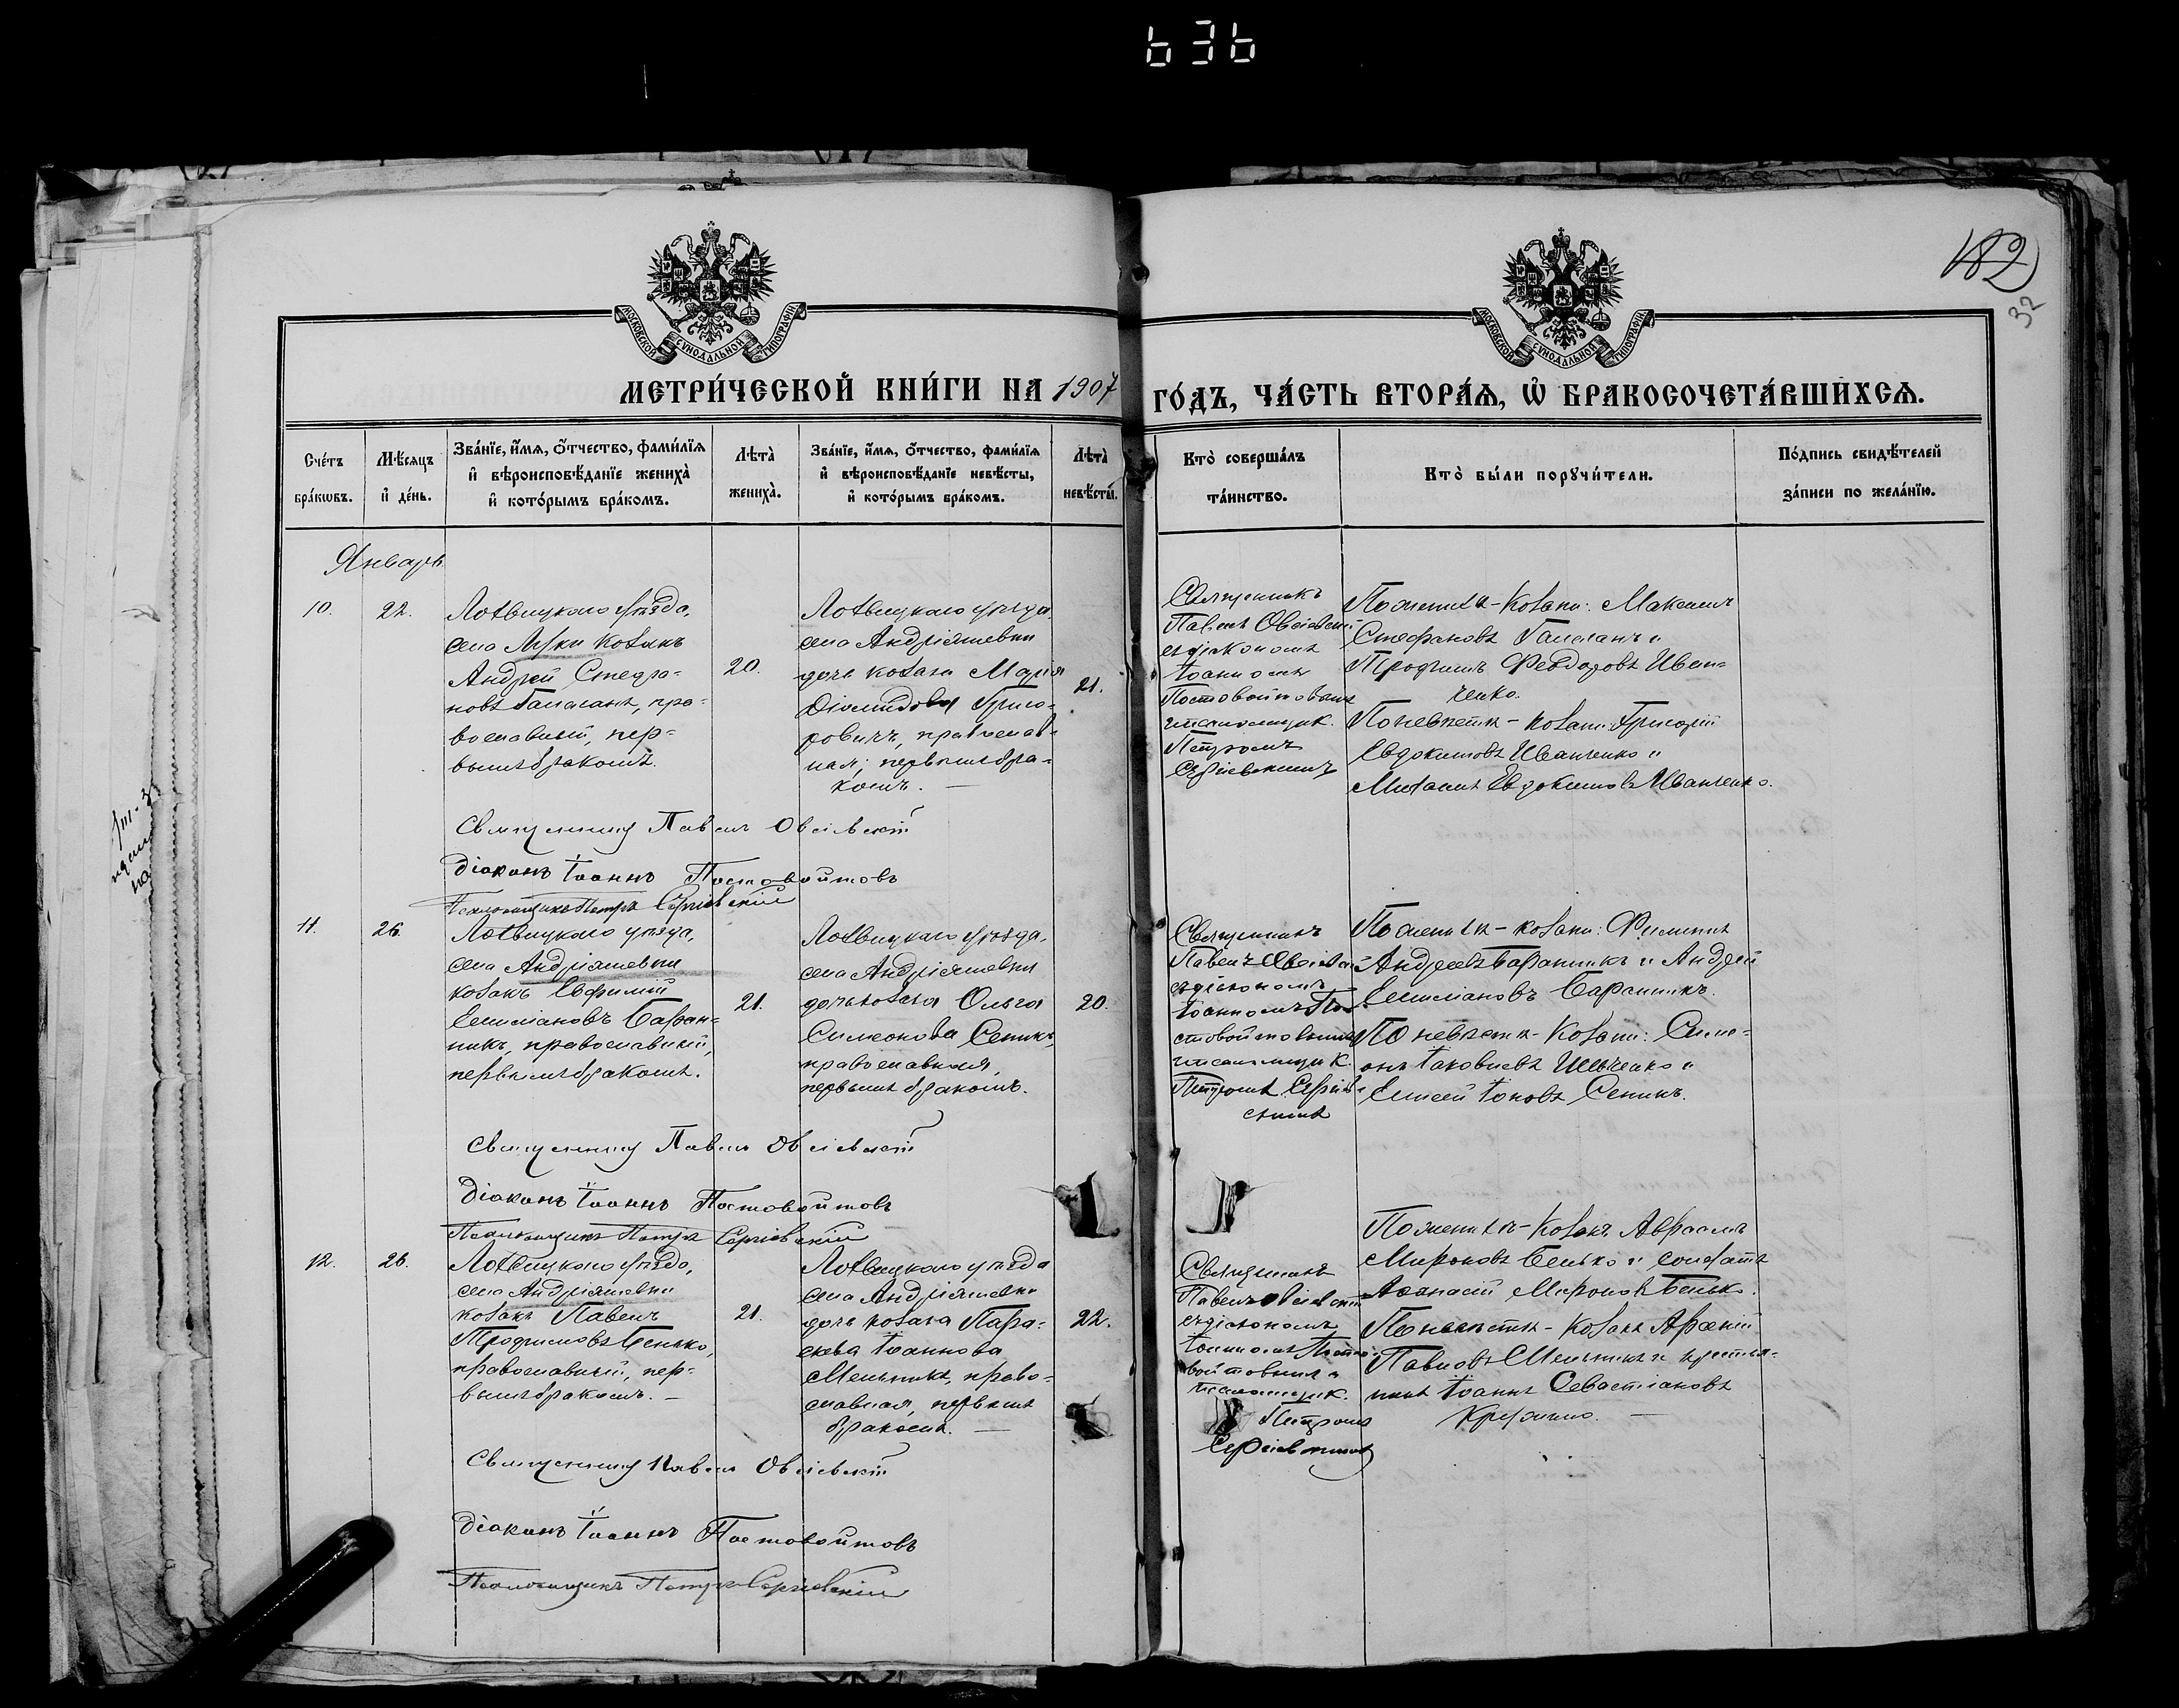 636
182
32
МОСКОВСКОЙ СѴНОДАЛЬНОЙ ТИПОГРАФІИ
МОСКОВСКОЙ СѴНОДАЛЬНОЙ ТИПОГРАФІИ
МЕТРИ́ЧЕСКОЙ КНИ́ГИ НА 1907 ГО́ДЪ, ЧА́СТЬ ВТОРА́Ѧ, Ѡ҆ БРАКОСОЧЕТА́ВШИХСѦ.
Сче́тъ
бра́кѡвъ.
Мѣ́сяцъ
и҆ де́нь.
Зва́нїе, и҆́мѧ, ѻ҆́тчество, фами́лїѧ
и҆ вѣроисповѣ́данїе жениха̀
и҆ кото́рымъ бра́комъ.
Лѣта̀
жениха̀.
Зва́нїе, и҆́мѧ, ѻ҆́тчество, фами́лїѧ
и҆ вѣроисповѣ́данїе невѣ́сты,
и҆ кото́рымъ бра́комъ.
Лѣта̀
невѣ́сты.
Кто̀ соверша́лъ
та́инство.
Кто̀ бы́ли порꙋчи́тели.
По́дпись свидѣ́телей
за́писи по жела́нїю.
Январь
10.
22.
Лохвицкаго уѣзда,
села Луки козакъ
Андрей Стефа-
новъ Галаганъ, пра-
вославный, пер-
вымъ бракомъ.
20.
Лохвицкаго уѣзда
села Андріяшевки
дочь козака Марія
Діомидова Григо-
ровичъ, православ-
ная, первымъ бра-
комъ.
21.
Священникъ
Павелъ Овсіевскій
съ діакономъ
Іоанномъ
Постовойтовымъ
и псаломщик.
Петромъ
Сергіевскимъ
По женихѣ - козаки: Максимъ
Стефановъ Галаганъ и
Трофимъ Феодоровъ Иван-
ченко.
По невѣстѣ - козаки: Григорій
Евдокимовъ Иванченко и
Михаилъ Евдокимовъ Иванченко.
Священникъ Павелъ Овсіевскій
Діаконъ Іоаннъ Постовойтовъ
Псаломщикъ Петръ Сергіевскій
11.
26.
Лохвицкаго уѣзда,
села Андріяшевки
козакъ Евфимій
Емиліановъ Баран-
никъ, православный,
первымъ бракомъ.
21.
Лохвицкаго уѣзда,
села Андріяшевки
дочь козака Ольга
Симеонова Сепикъ,
православная,
первымъ бракомъ.
20.
Священникъ
Павелъ Овсіевскій
съ діакономъ
Іоанномъ По-
стовойтовымъ
и псаломщик.
Петромъ Сергіев-
скимъ
По женихѣ - козаки: Филиппъ
Андреевъ Баранникъ и Андрей
Емиліановъ Баранникъ.
По невѣстѣ - козаки: Симе-
онъ Іаковлевъ Шевченко и
Елисей Іоновъ Сепикъ.
Священникъ Павелъ Овсіевскій
Діаконъ Іоаннъ Постовойтовъ
Псаломщикъ Петръ Сергіевскій
12.
26.
Лохвицкаго уѣзда,
села Андріяшевки
козакъ Павелъ
Трофимовъ Бенько,
православный, пер-
вымъ бракомъ.
21.
Лохвицкаго уѣзда
села Андріяшевки
дочь козака Пара-
скева Іоаннова
Мельникъ, право-
славная, первымъ
бракомъ.
22.
Священникъ
Павелъ Овсіевскій
съ діакономъ
Іоанномъ Посто-
войтовымъ и
псаломщик.
Петромъ
Сергіевскимъ
По женихѣ - козакъ Авраамъ
Мироновъ Бенько и солдатъ
Аѳанасій Мироновъ Бенько.
По невѣстѣ - козакъ Арсеній
Павловъ Мельникъ и крестья-
нинъ Іоаннъ Севастіановъ
Священникъ Павелъ Овсіевскій
Діаконъ Іоаннъ Постовойтовъ
Псаломщикъ Петръ Сергіевскій